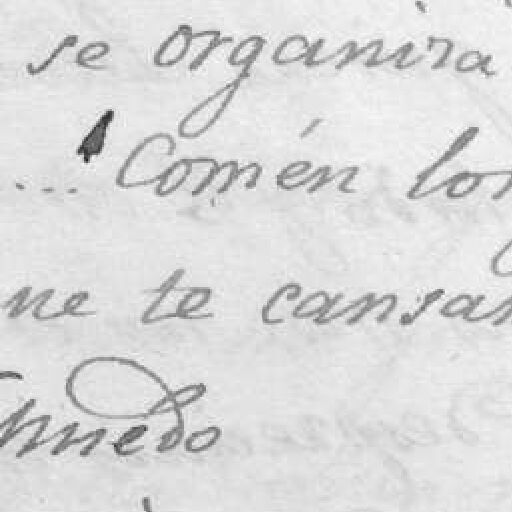 se organira
... Comén lon
ne te cansar
nuedo